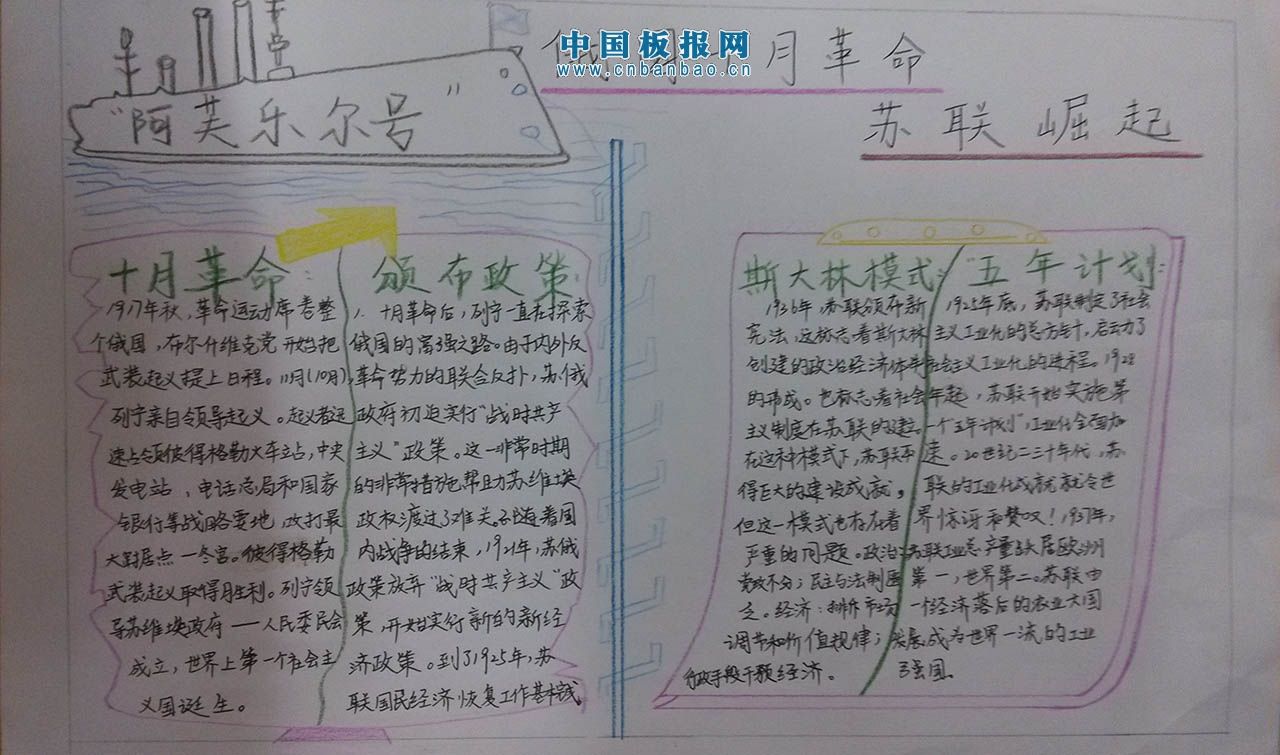 中国板报网
www.cnbanbao.cn
俄
月革命
苏联崛起
"阿芙乐尔号"
十月革命:
1917年秋,革命运动席卷整
个俄国,布尔什维克党开始把
武装起义提上日程。11月(10月),
列宁亲自领导起义。起义者迅
速占领彼得格勒火车站,中央
发电站、电话总局和国家
银行等战略要地,攻打最
大据点—冬宫。彼得格勒
武装起义取得胜利。列宁领
导苏维埃政府——人民委员会
成立,世界上第一个社会主
义国诞生。
颁布政策:
1、十月革命后,列宁一直在探索
俄国的富强之路。由于内外反
革命势力的联合反扑,苏俄
政府初迫实行"战时共产
主义"政策。这一非常时期
的非常措施帮助苏维埃
政权渡过了难关。随着国
内战争的结束,1921年,苏俄
政策放弃"战时共产主义"政
策,开始实行新的新经
济政策。到了1925年,苏
联国民经济恢复工作基本完成
斯大林模式:
1936年,苏联颁布新
宪法,这标志着斯大林
创建的政治经济体制
的形成。也标志着社会
主义制度在苏联的建立。
在这种模式下,苏联取
得巨大的建设成就。
但这一模式也存在着
严重的问题。政治:
党政不分;民主与法制匮
乏。经济:排斥市场
调节和价值规律;
行政手段干预经济。
"五年计划:
1925年底,苏联制定了社会
主义工业化的总方针,启动了
社会主义工业化的进程。1928
年起,苏联开始实施第
一个五年计划",工业化全面加
速。20世纪二三十年代,苏
联的工业化成就就令世
界惊讶和赞叹!1937年,
苏联工业总产量跃居欧洲
第一,世界第二。苏联由
一个经济落后的农业大国
发展成为世界一流的工业
强国。